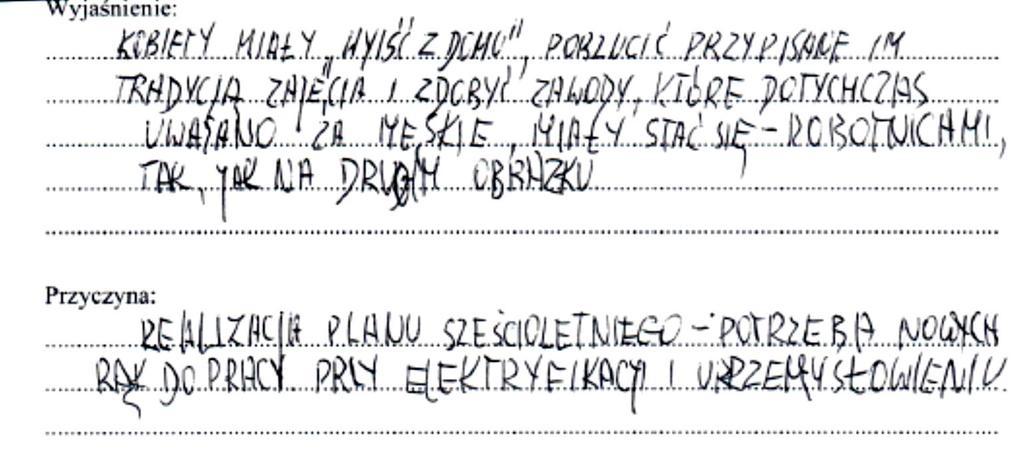 Wyjaśnienie:
KOBIETY MIAŁY „WYJŚĆ Z DOMU", PORZUCIĆ PRZYPISANE IM
TRADYCJĄ ZAJĘCIA I ZDOBYĆ ZAWODY, KTÓRE DOTYCHCZAS
UWAŻANO ZA MĘSKIE, MIAŁY STAĆ SIĘ - ROBOTNICAMI,
TAK, JAK NA DRUGIM OBRAZKU
Przyczyna:
REALIZACJA PLANU SZEŚCIOLETNIEGO - POTRZEBA NOWYCH
RĄK DO PRACY PRZY ELEKTRYFIKACJI I UPRZEMYSŁOWIENIU